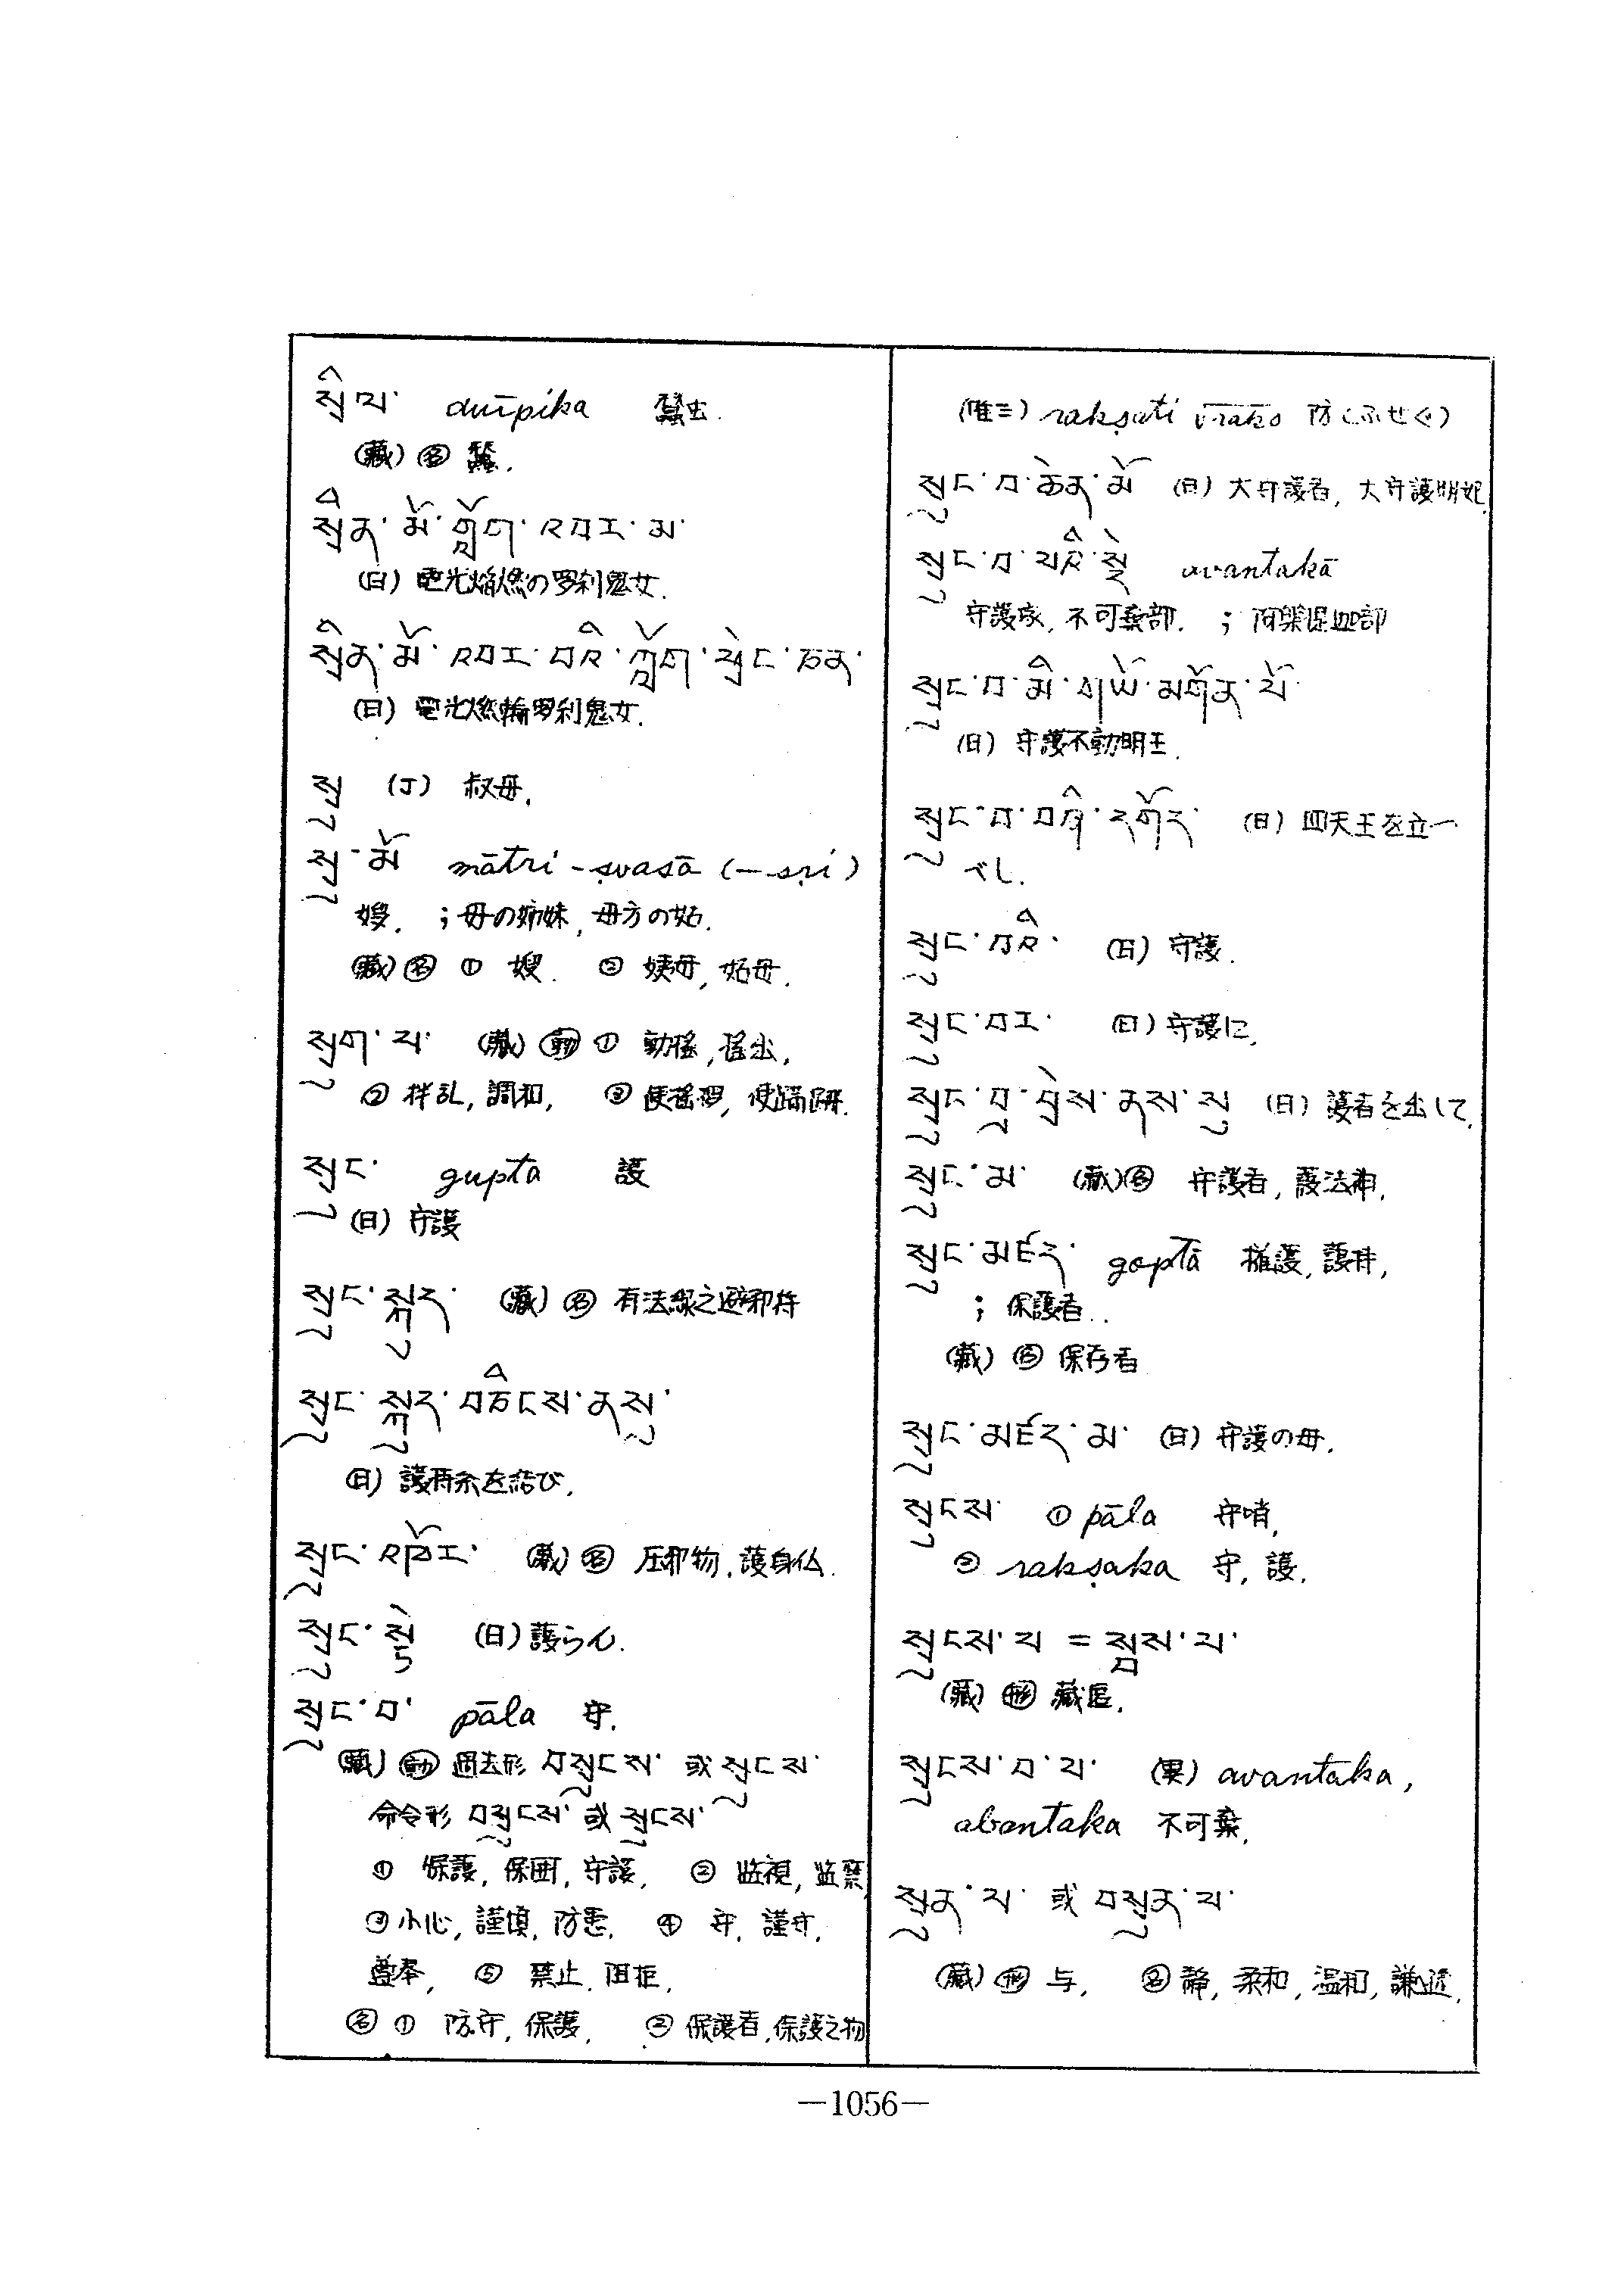 སྲིལ་ dvīpika 蚕虫.
(藏) 名 蚕.
སྲིན་མོ་གློག་འབར་མ་
(日) 電光焔燃の罗刹鬼女.
སྲིན་མོ་འབར་བའི་ཀློག་ཕྲེང་ཅན་
(日) 電光燃輪罗刹鬼女.
སྲུ (丁) 叔母.
སྲུ་མོ mātri-ṣvasā (—sṛi)
嫂. ; 母の姉妹, 母方の姑.
(藏) 名 ① 嫂. ② 姨母, 姑母.
སྲུག་པ་ (藏) 動 ① 動搖, 搖出,
② 拌乱, 調和, ③ 使搖摆, 使蹒跚.
སྲུང་ gupta 護
(日) 守護
སྲུང་སྐུད་ (藏) 名 有法線之避邪符
སྲུང་སྐུད་བཅིངས་ནསུ་
(日) 護再糸を結び.
སྲུང་འཁོར་ (藏) 名 圧邪物, 護身仏.
སྲུང་སྟེ (日) 護らん.
སྲུང་བ་ pāla 守.
(藏) 動 過去形 བསྲུངས་ 或 སྲུངས་
命令形 བསྲུངས་ 或 སྲུངས་
① 保護, 保囲, 守護, ② 监視, 监禁
③ 小心, 謹慎, 防患. ④ 守, 謹守,
遵奉, ⑤ 禁止, 阻拒,
名 ① 防守, 保護, ② 保護者, 保護之物
(唯三) rakṣati √rakṣ 防 (ふせぐ)
སྲུང་བ་ཆེན་མོ (日) 大守護者, 大守護明妃.
སྲུང་བ་པའི་སྡེ avantakā
守護成, 不可棄部. ; 阿槃提迦部
སྲུང་བ་མི་གཡོ་མགོན་པོ
(日) 守護不動明王.
སྲུང་བ་བཞི་དགོད་ (日) 四天王を立つ
べし.
སྲུང་བའི་ (日) 守護.
སྲུང་བར་ (日) 守護に.
སྲུང་བུ་བྱེས་ནས་སུ (日) 護者を出して.
སྲུང་མ་ (藏) 名 守護者, 護法神,
སྲུང་མཛད་ goptā 擁護, 護持,
; 保護者.
(藏) 名 保存者
སྲུང་མཛད་མ་ (日) 守護の母.
སྲུངས་ ① pāla 守哨,
② rakṣaka 守, 護.
སྲུངས་པ = སྦས་པ་
(藏) 形 藏匿.
སྲུངས་བ་པ་ (果) avantaka,
abantaka 不可棄.
སྲུན་པ་ 或 བསྲུན་པ་
(藏) 形 与, 名 静, 柔和, 温和, 謙遜.
—1056—